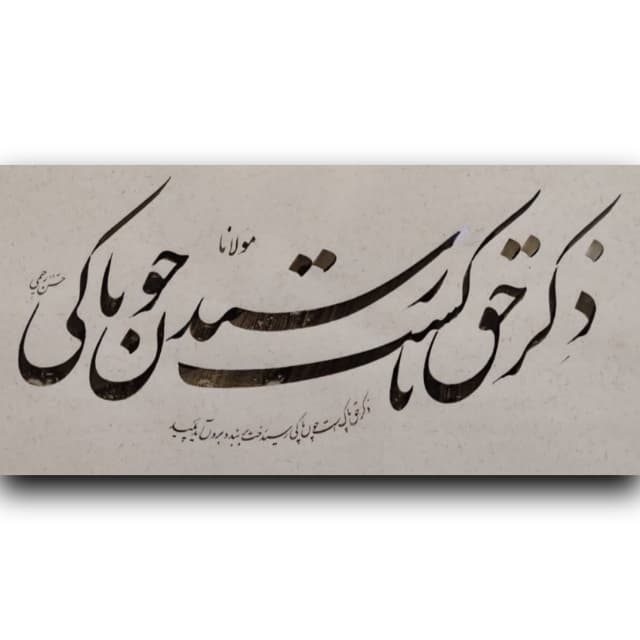 مولانا
ذکر حق پاکست چون پاکی رسید
ذکر حق پاک است چون پاکی رسید رخت بربندد برون آید پلید